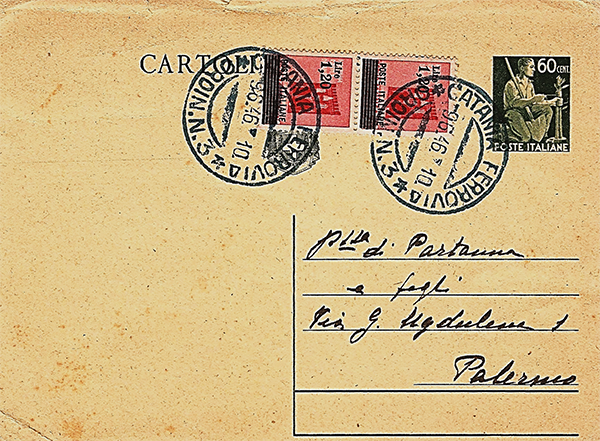 CARTOLI
Lire
1,20
POSTE ITALIANE
Lire
1,20
POSTE ITALIANE
60 CENT.
POSTE ITALIANE
CATANIA FERROVIA
ORDIN. N. 3
.96.46 10
CATANIA FERROVIA
ORDIN. N. 3
.96.46 10
P.ssa di Partanna
e figli
Via G. Ugdulena 1
Palermo